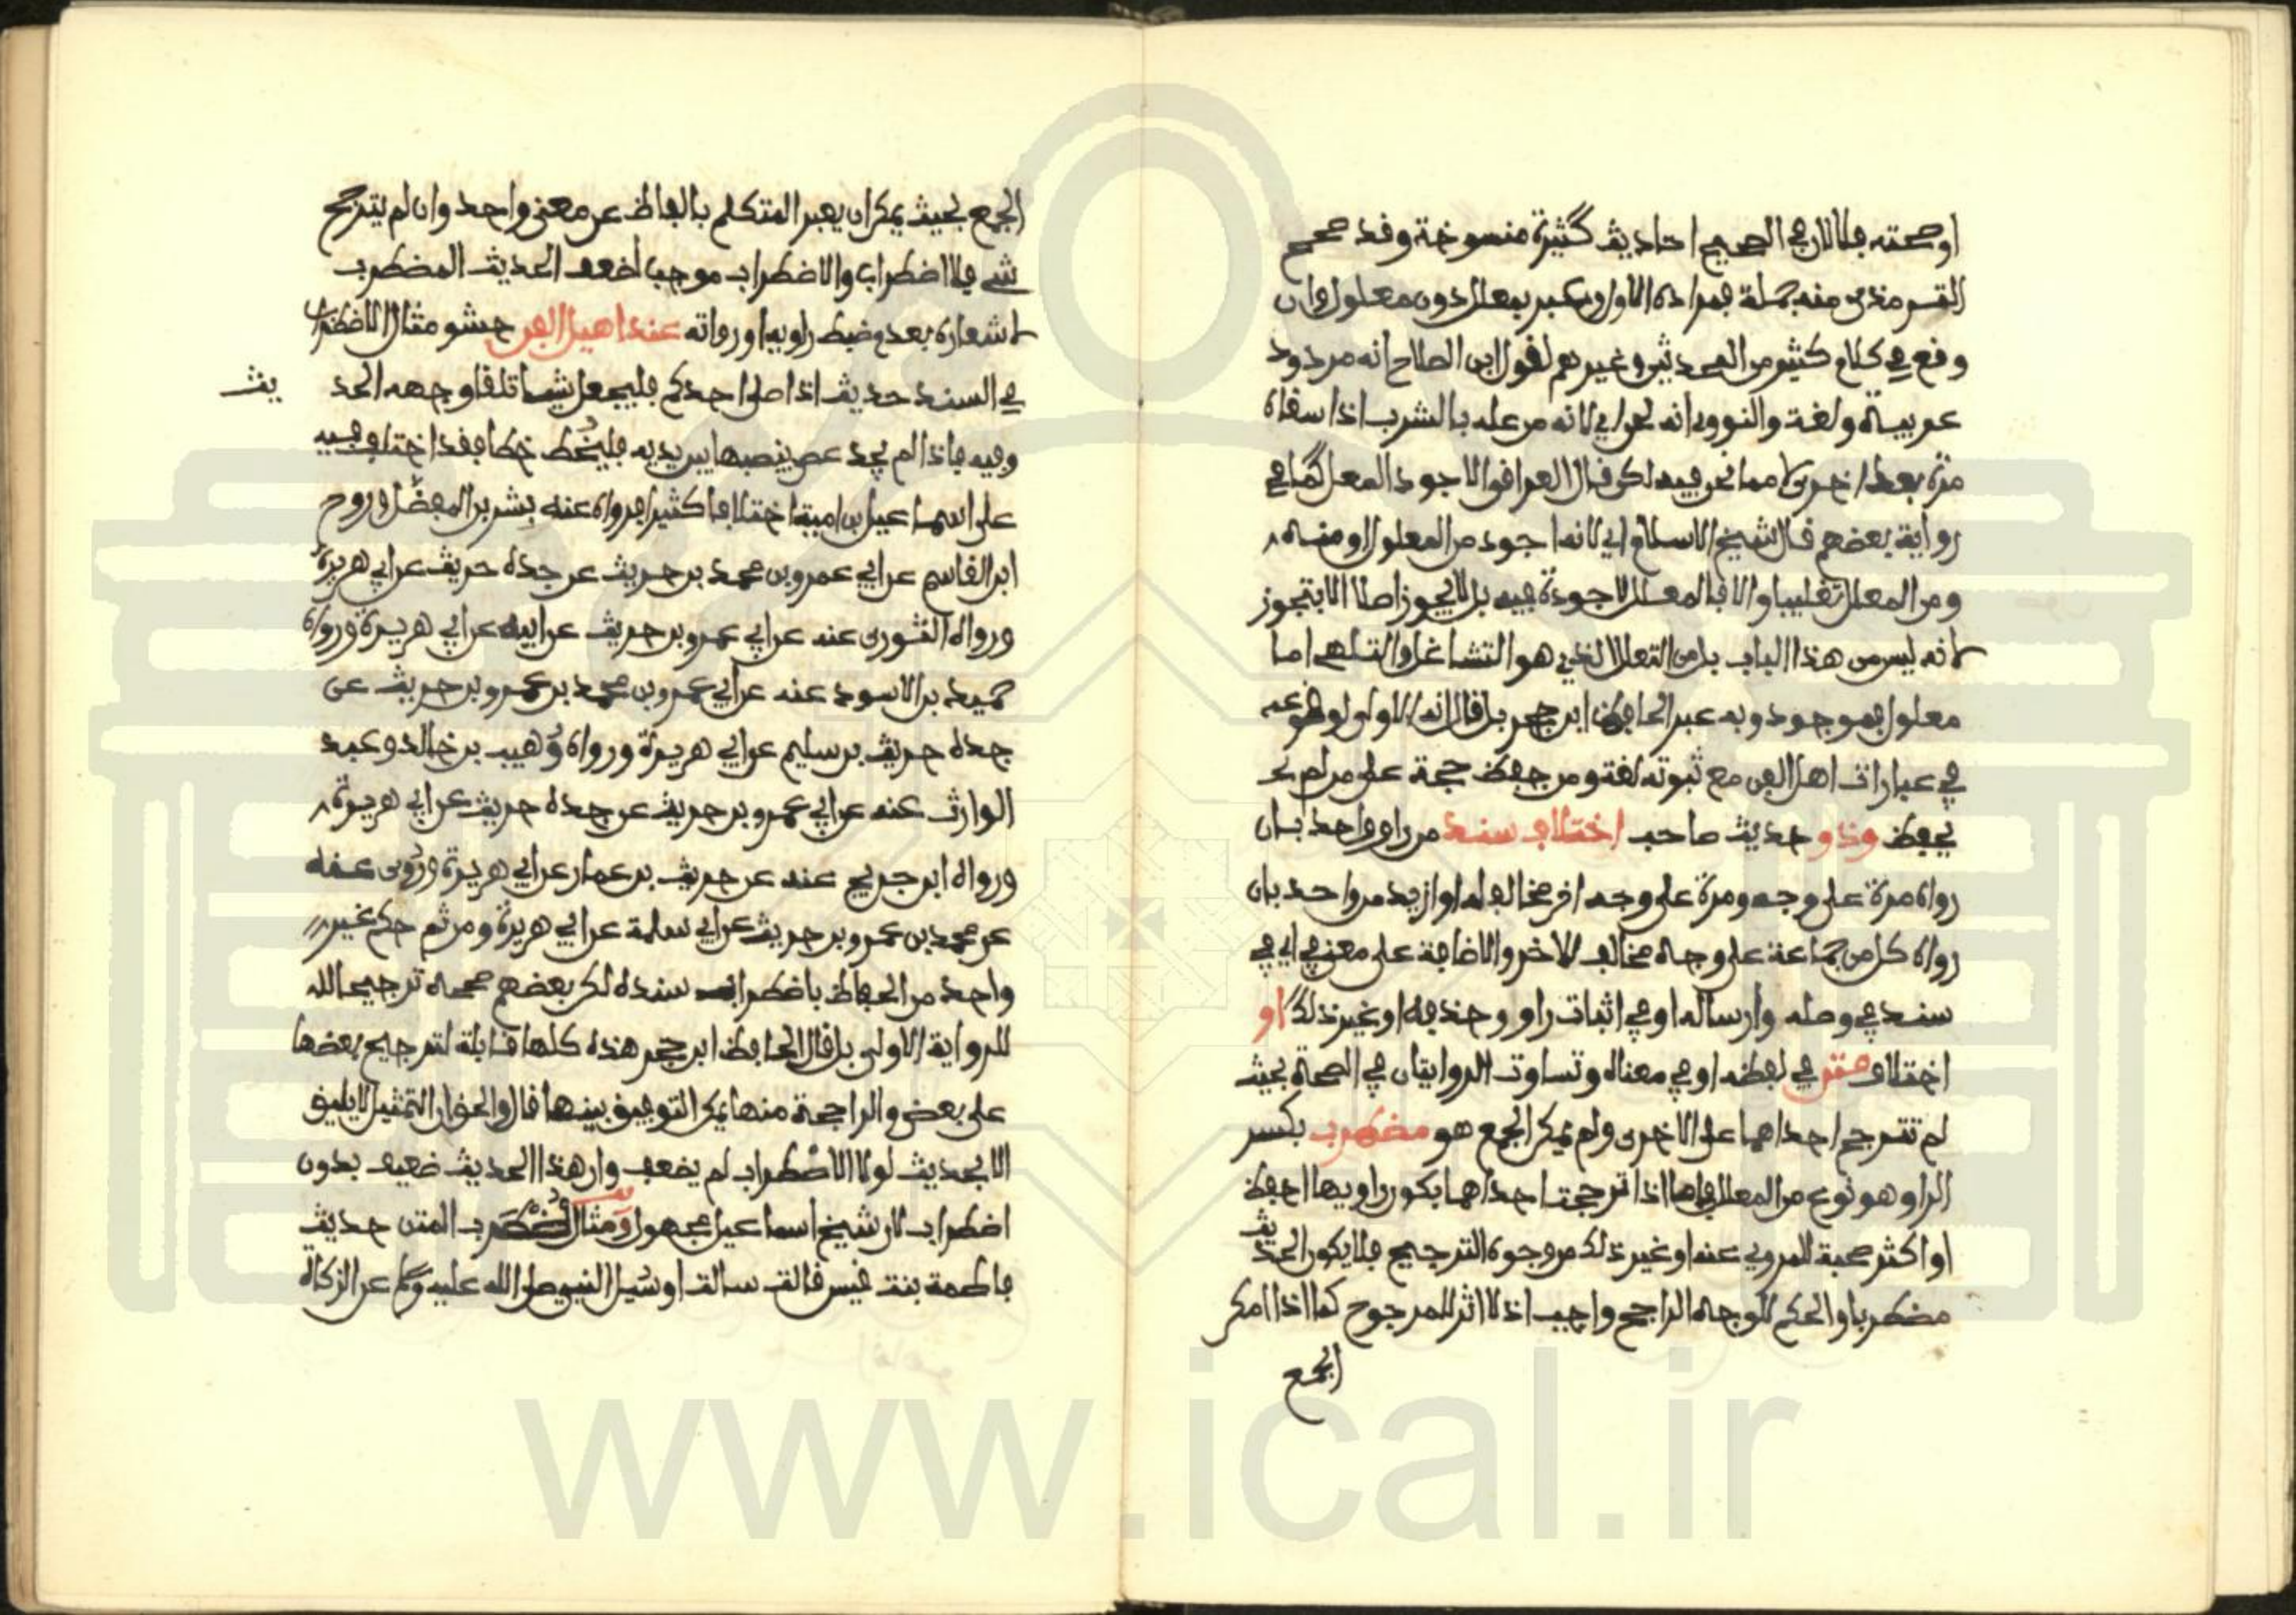 او صحته فلا لان في الصحيح احاديث كثيرة منسوخة وقد صحح
الترمذي منه جملة فمراده الاول وعبر بمعلل دون معلول وان
وقع في كلام كثير من المحدثين وغيرهم لقول ابن الصلاح انه مردود
عربية ولغة والنووي انه لحن اي لانه من عله بالشراب اذا سقاه
مرة بعد اخرى لا مما نحن فيه لكن قال العراقي والاجود المعل كما في
رواية بعضهم قال شيخ الاسلام اي لانه اجود من المعلول او منه
ومن المعلل تغليبا والا فالمعلل لا جودة فيه بل لا يجوز اصلا الا بتجوز
لانه ليس من هذا الباب بل من التعلل الذي هو التشاغل والتلهي اما
معلول فموجود وبه عبر الحافظ ابن حجر بل قال انه الاولى لوقوعه
في عبارات اهل الفن مع ثبوته لغة ومن حفظ حجة على من لم
يحفظ وذو حديث صاحب اختلاف سند من راو واحد بان
رواه مرة على وجه ومرة على وجه اخر مخالف له او ازيد من واحد بان
رواه كل من جماعة على وجه مخالف للاخر والاضافة على معنى في اي في
سند في وصله وارساله او في اثبات راو وحذفه او غير ذلك او
اختلاف متن في لفظه او في معناه وتساوت الروايتان في الصحة بحيث
لم تترجح احداهما على الاخرى ولم يمكن الجمع هو مضطرب بكسر
الرا وهو نوع من المعلل فاما اذا ترجحت احداهما بكون راويها احفظ
او اكثر صحبة للمروي عنه او غير ذلك من وجوه الترجيح فلا يكون الحديث
مضطربا والحكم للوجه الراجح واجب اذ لا اثر للمرجوح كما اذا امكن
الجمع
الجمع بحيث يمكن ان يعبر المتكلم بالفاظ عن معنى واحد وان لم يترجح
شي فلا اضطراب والاضطراب موجب لضعف الحديث المضطرب
لاشعاره بعدم ضبط راويه او رواته عند اهيل الفن حشو مثال الاضطراب
في السند حديث اذا صلى احدكم فليجعل شيئا تلقاء وجهه الحد يث
وفيه فاذا لم يجد عصى ينصبها بين يديه فليخط خطا فقد اختلف فيه
على اسماعيل بن امية اختلافا كثيرا فرواه عنه بشر بن المفضل وروح
ابن القاسم عن ابي عمرو بن محمد بن حريث عن جده حريث عن ابي هريرة
ورواه الثوري عنه عن ابي عمرو بن حريث عن ابيه عن ابي هريرة ورواه
حميد بن الاسود عنه عن ابي عمرو بن محمد بن عمرو بن حريث عن
جده حريث بن سليم عن ابي هريرة ورواه وهيب بن خالد وعبد
الوارث عنه عن ابي عمرو بن حريث عن جده حريث عن ابي هريرة
ورواه ابن جريج عنه عن حريث بن عمار عن ابي هريرة وروي عنه
عن محمد بن عمرو بن حريث عن ابي سلمة عن ابي هريرة ومن ثم حكم غير
واحد من الحفاظ باضطراب سنده لكن بعضهم صححه ترجيحا
للرواية الاولى بل قال الحافظ ابن حجر هذه كلها قابلة لترجيح بعضها
على بعض والراجحة منها يمكن التوفيق بينها قال والحق ان التمثيل لا يليق
الا بحديث لولا الاضطراب لم يضعف وان هذا الحديث ضعيف بدون
اضطراب لان شيخ اسماعيل مجهول ومثال مضطرب المتن حديث
فاطمة بنت قيس قالت سالت او سئل النبي صلى الله عليه وسلم عن الزكاة